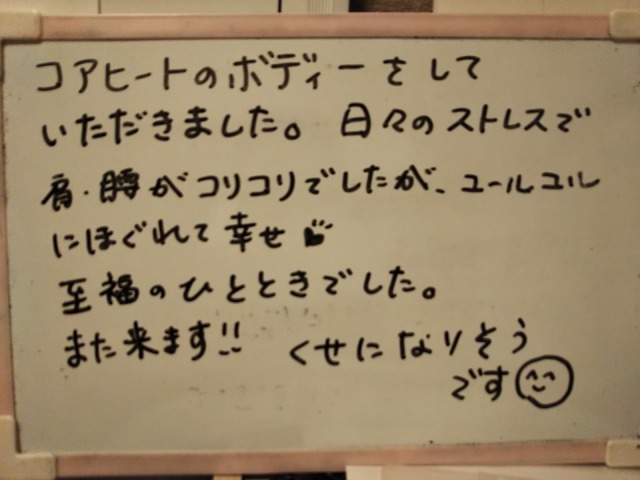 コアヒートのボディーをして
いただきました。日々のストレスで
肩・腰がコリコリでしたが、ユールユル
にほぐれて幸せ
至福のひとときでした。
また来ます!! くせになりそう
です